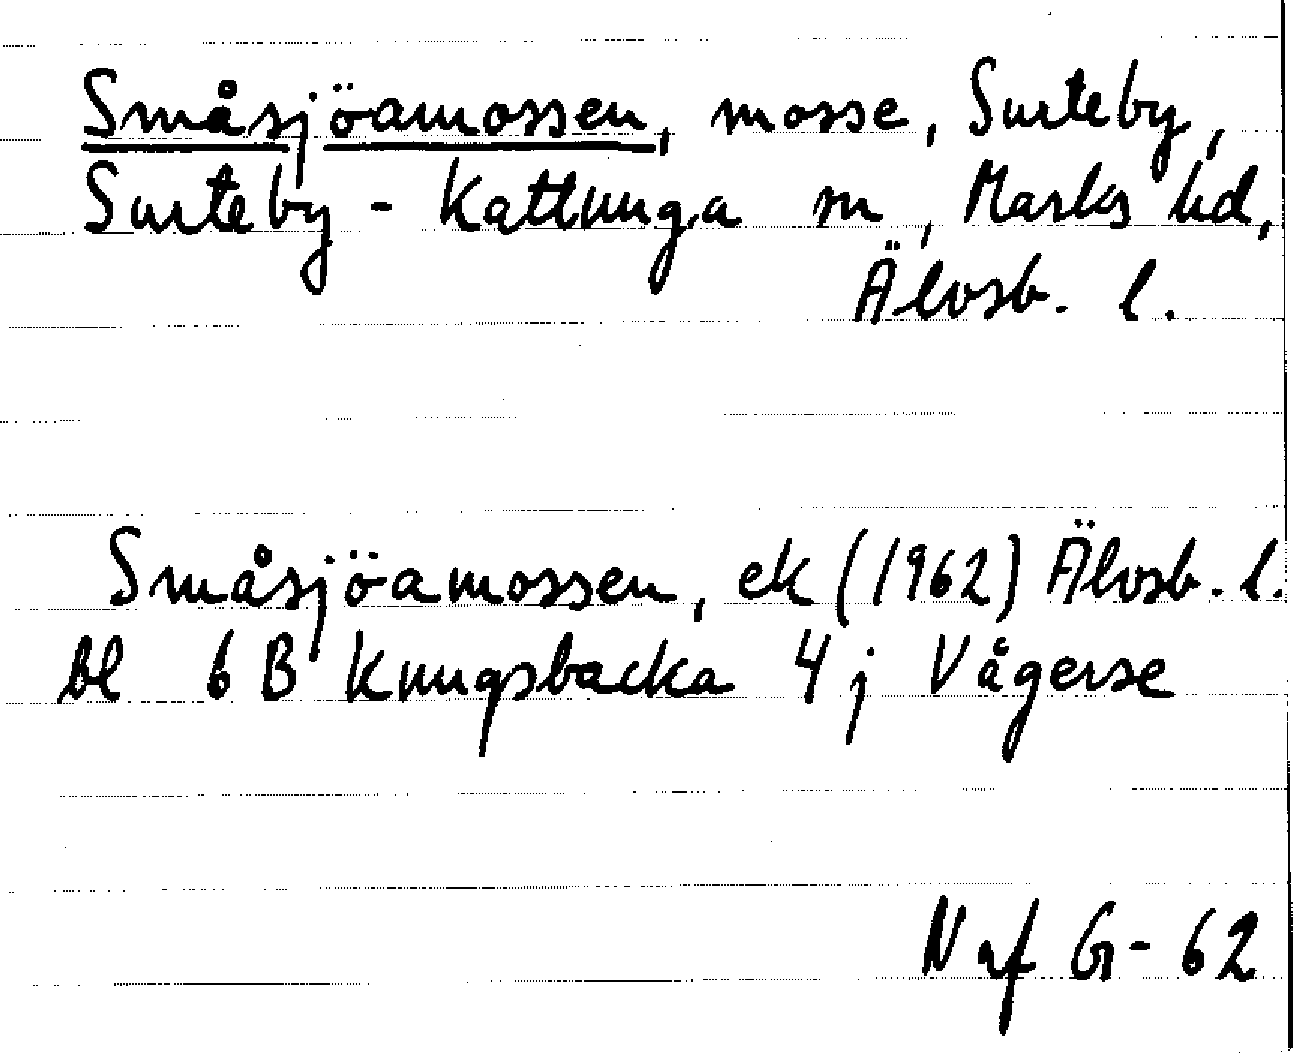 Småsjöamossen, mosse, Surteby,
Surteby-Kattunga sn, Marks hd,
Älvsb. l.
Småsjöamossen, ek (1962) Älvsb. l.
bl 6 B Kungsbacka 4 j Vågerse
Naf G-62